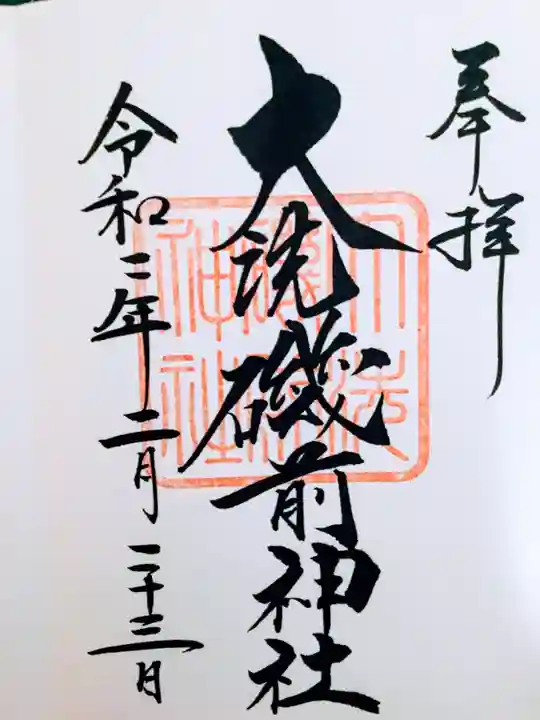 奉拝
大洗磯前神社
大洗磯前神社
令和二年二月二十三日